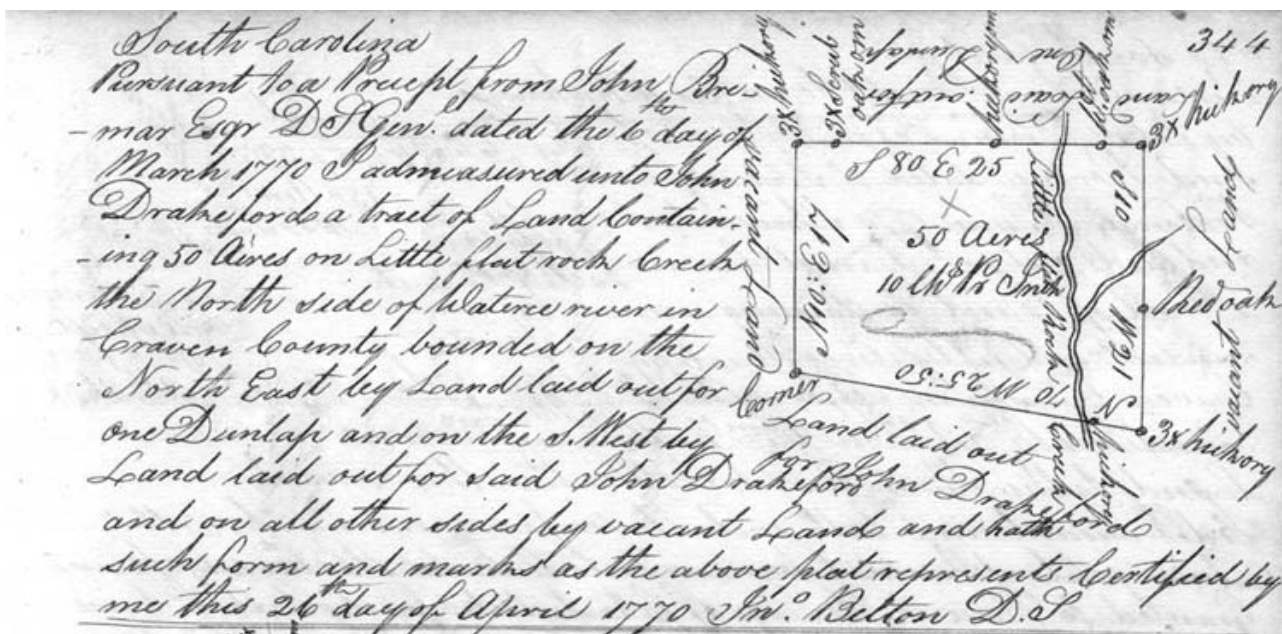 344
South Carolina
Pursuant to a Precept from John Bre-
-mar Esqr D S Genl. dated the 6th day of
March 1770 I admeasured unto John
Drakeford a tract of Land Contain-
-ing 50 Acres on Little flat rock Creek
the North side of Wateree river in
Craven County bounded on the
North East by Land laid out for
one Dunlap and on the S. West by
Land laid out for said John Drakeford
and on all other sides by vacant Land and hath
such form and marks as the above plat represents Certified by
me this 26th day of April 1770 Jno. Belton D. S
3x hickory
3x Scrub
oak
Land laid out for one Dunlap
3x hickory
S 80 E 25
vacant Land
No: E 17
50 Acres
10 Chs Pr Inch
Little flat Rock
Creek
S 10
W 21
Red oak
vacant Land
N 70 W 25:50
Corner
3x hickory
hickory
Land laid out
for John Drakeford